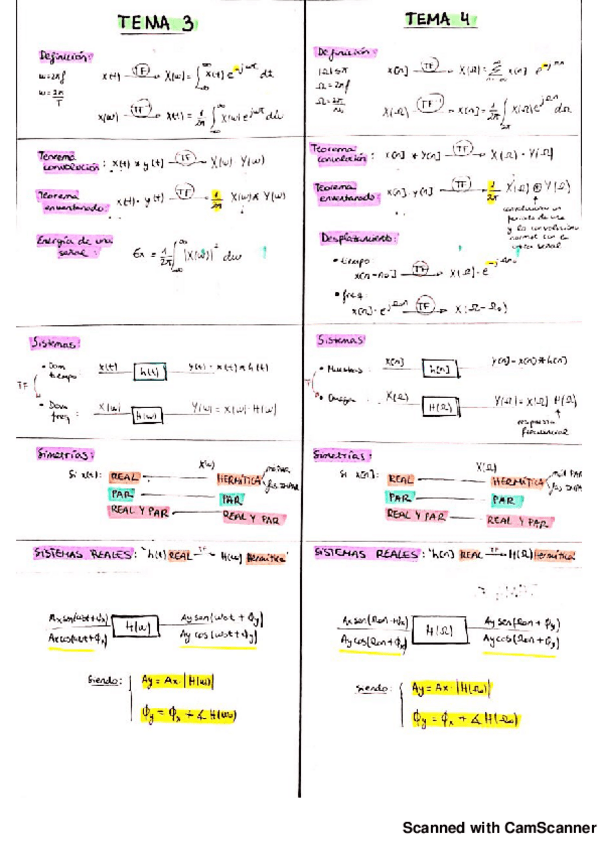 TEMA 3
Definición:
ω=2πf
ω=2π/T
x(t) —TF→ X(ω)=∫_{-∞}^{∞} x(t) e^{-jωt} dt
X(ω) —TF⁻¹→ x(t)=1/2π ∫_{-∞}^{∞} X(ω) e^{jωt} dω
Teorema convolución: x(t) * y(t) —TF→ X(ω) · Y(ω)
Teorema enventanado: x(t) · y(t) —TF→ 1/2π X(ω) * Y(ω)
Energía de una señal: Ex = 1/2π ∫_{-∞}^{∞} |X(ω)|² dω
Sistemas:
• Dom tiempo x(t) h(t) y(t) = x(t) * h(t)
TF
• Dom freq: X(ω) H(ω) Y(ω) = X(ω) · H(ω)
Simetrías:
Si x(t): X(ω)
REAL HERMÍTICA
PAR PAR
REAL Y PAR REAL Y PAR
SISTEMAS REALES: "h(t) REAL —TF→ H(ω) Hermítica"
Ax sen(ω₀t+ϕx) H(ω) Ay sen(ω₀t + ϕy)
Ax cos(ω₀t+ϕx) Ay cos(ω₀t+ϕy)
Siendo: Ay = Ax · |H(ω₀)|
ϕy = ϕx + ∡ H(ω₀)
TEMA 4
Definición:
Ω=2πf
x[n] —TF→ X(Ω)=∑ x[n] e^{-jΩn}
X(Ω) —TF⁻¹→ x[n]=1/2π ∫_{2π} X(Ω) e^{jΩn} dΩ
Teorema convolución: x[n] * y[n] —TF→ X(Ω) · Y(Ω)
Teorema enventanado: x[n] · y[n] —TF→ 1/2π X(Ω) ⊛ Y(Ω)
Desplazamiento:
• tiempo
x[n-n₀] —TF→ X(Ω) · e^{-jΩn₀}
• freq:
x[n] · e^{jΩ₀n} —TF→ X(Ω-Ω₀)
Sistemas
• Muestras: x[n] h[n] y[n] = x[n] * h[n]
• Omega: X(Ω) H(Ω) Y(Ω) = X(Ω) · H(Ω)
respuesta frecuencial
Simetrías:
Si x[n]: X(Ω)
REAL HERMÍTICA
PAR PAR
REAL Y PAR REAL Y PAR
SISTEMAS REALES: "h[n] REAL —TF→ H(Ω) Hermítica"
Ax sen(Ω₀n+ϕx) H(Ω) Ay sen(Ω₀n + ϕy)
Ay cos(Ω₀n+ϕx) Ay cos(Ω₀n+ϕy)
Siendo: Ay = Ax · |H(Ω₀)|
ϕy = ϕx + ∡ H(Ω₀)
Scanned with CamScanner